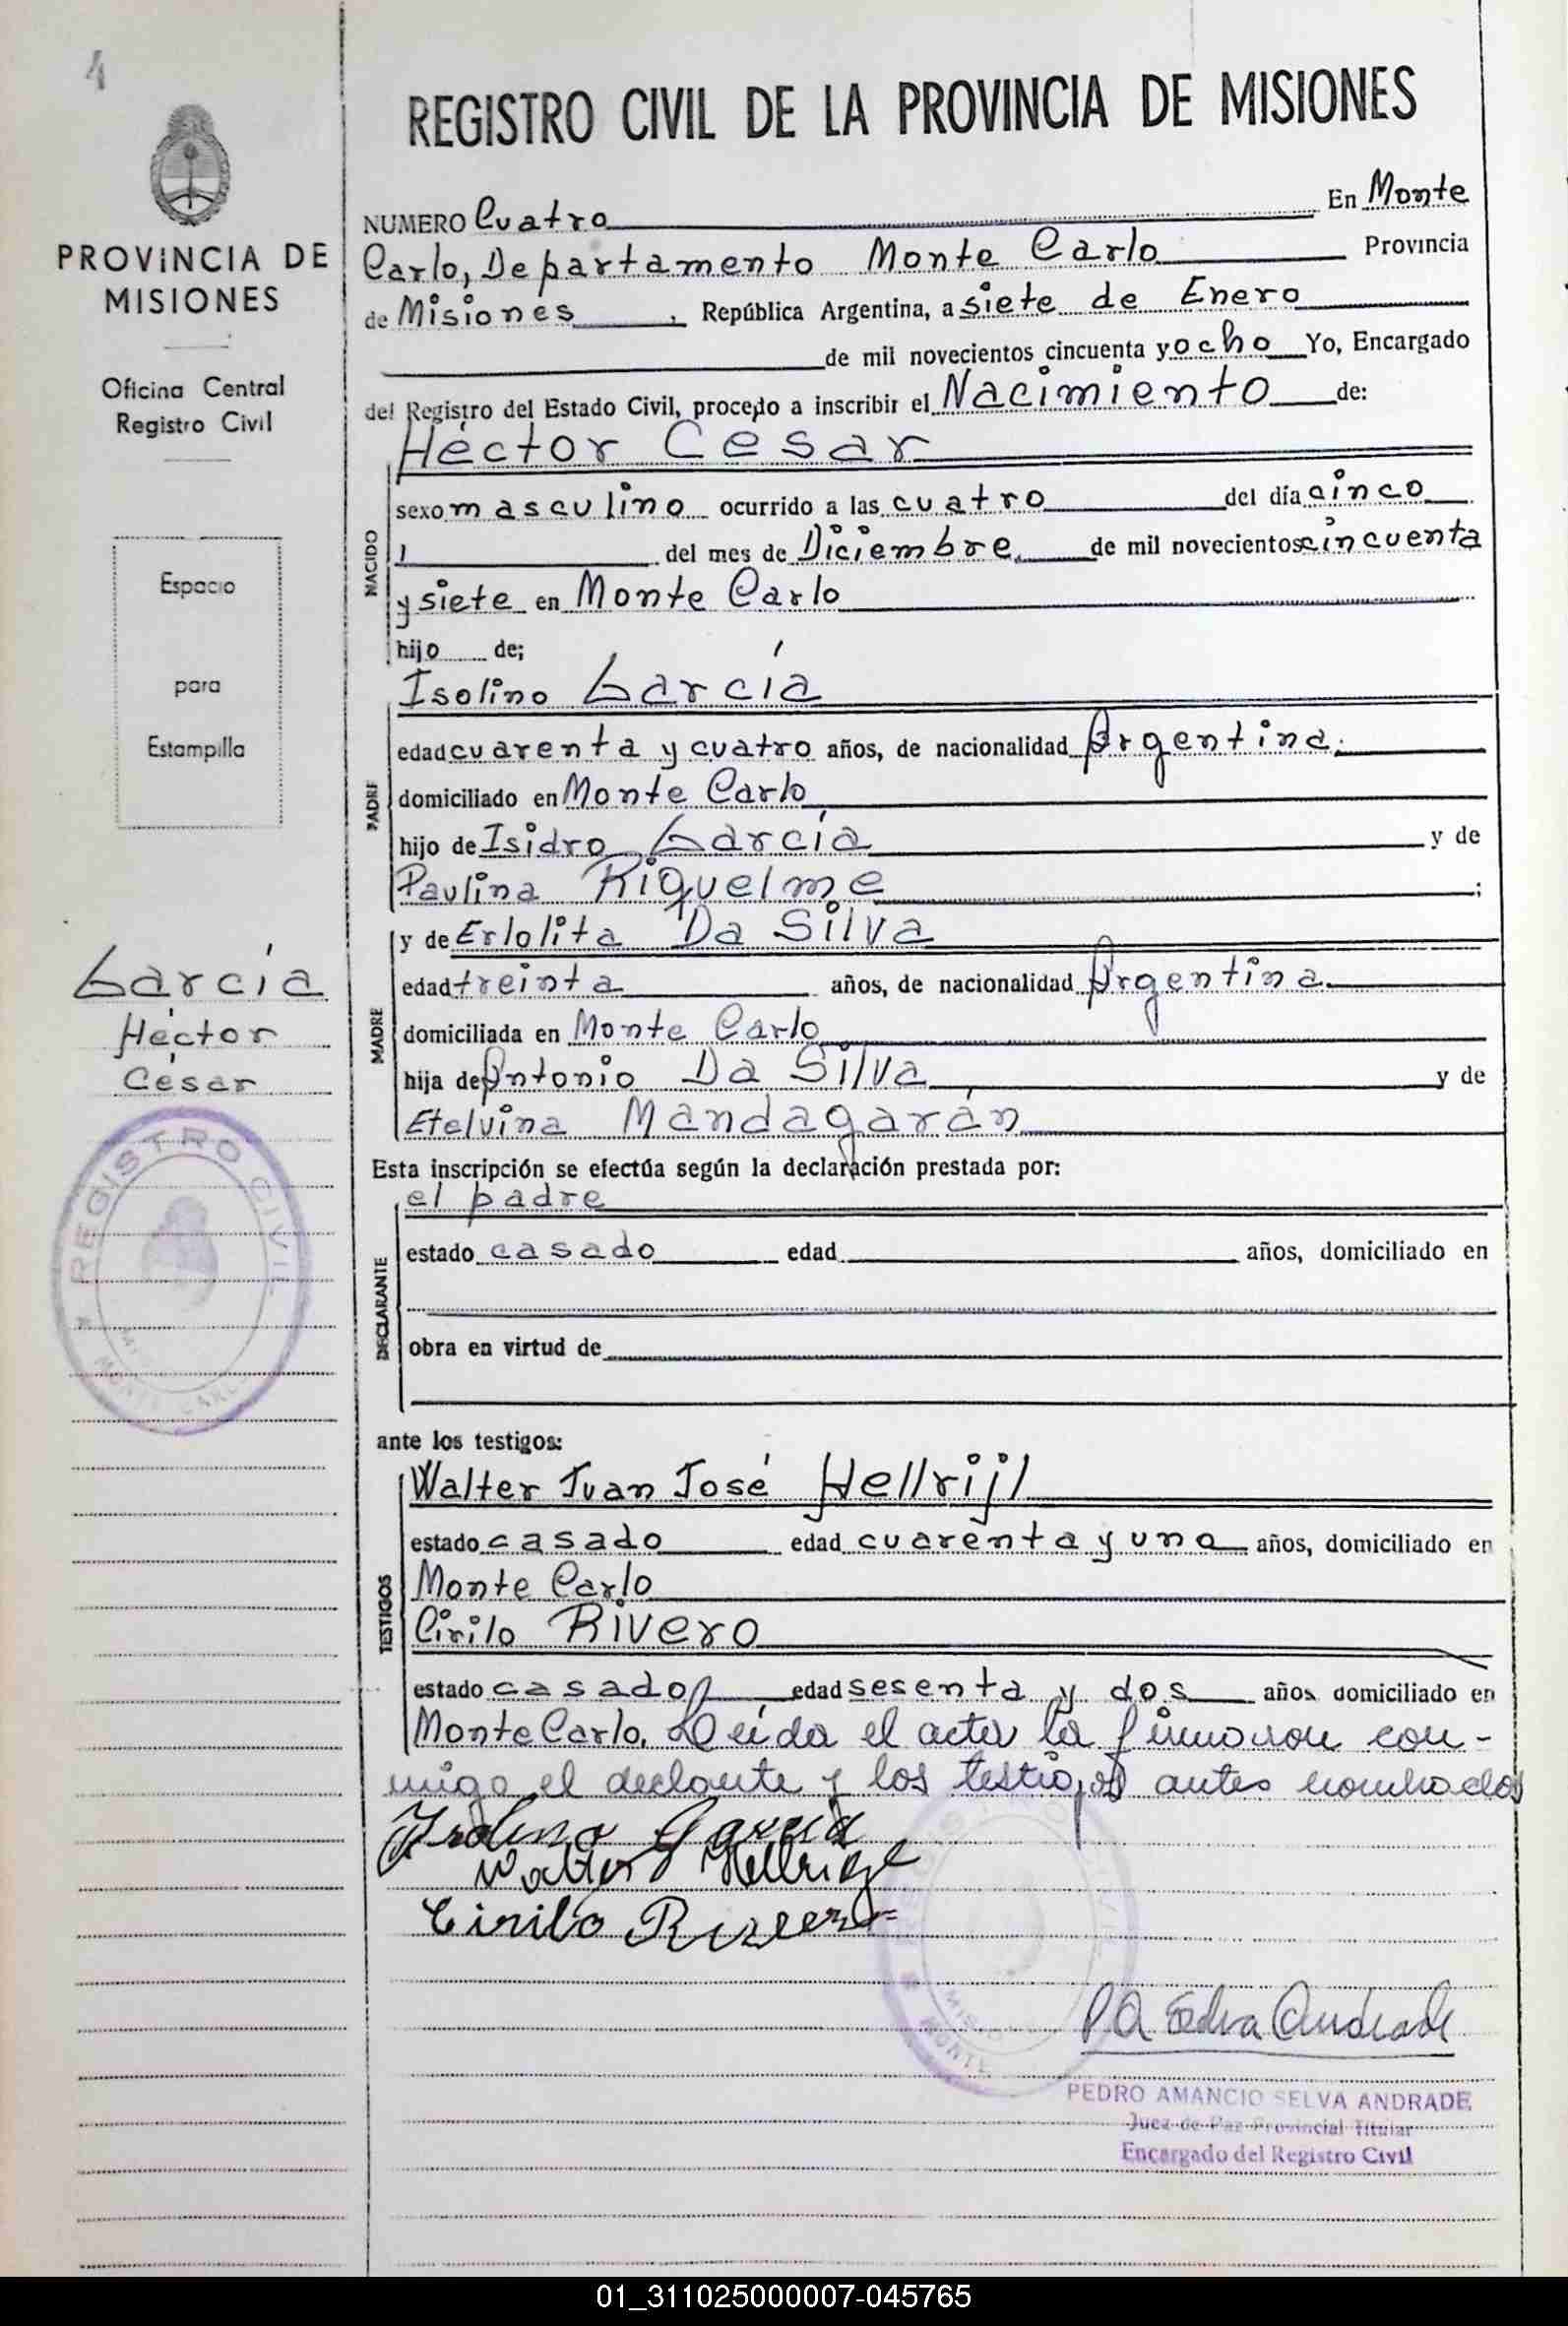 4
REGISTRO CIVIL DE LA PROVINCIA DE MISIONES
PROVINCIA DE
MISIONES
Oficina Central
Registro Civil
Espacio
para
Estampilla
García
Héctor
César
REGISTRO CIVIL
MONTE CARLO
NUMERO Cuatro En Monte
Carlo, Departamento Monte Carlo Provincia
de Misiones, República Argentina, a siete de Enero
de mil novecientos cincuenta y ocho Yo, Encargado
del Registro del Estado Civil, procedo a inscribir el Nacimiento de:
Héctor César
NACIDO
sexo masculino ocurrido a las cuatro del día cinco
del mes de Diciembre de mil novecientos cincuenta
y siete en Monte Carlo
hijo de;
Isolino García
PADRE
edad cuarenta y cuatro años, de nacionalidad Argentina.
domiciliado en Monte Carlo
hijo de Isidro García y de
Paulina Riquelme ;
y de Erlolita Da Silva
MADRE
edad treinta años, de nacionalidad Argentina.
domiciliada en Monte Carlo
hija de Antonio Da Silva y de
Etelvina Mandagarán
Esta inscripción se efectúa según la declaración prestada por:
el padre
DECLARANTE
estado casado edad años, domiciliado en
obra en virtud de
ante los testigos:
Walter Juan José Hellrijl
TESTIGOS
estado casado edad cuarenta y uno años, domiciliado en
Monte Carlo
Cirilo Rivero
estado casado edad sesenta y dos años domiciliado en
Monte Carlo. Leída el acta la firmaron con-
migo el declante y los testigos antes nombrados
Isolino García
Walter
Cirilo Rivero
P A Selva Andrade
PEDRO AMANCIO SELVA ANDRADE
Juez de Paz Provincial Titular
Encargado del Registro Civil
01_311025000007-045765